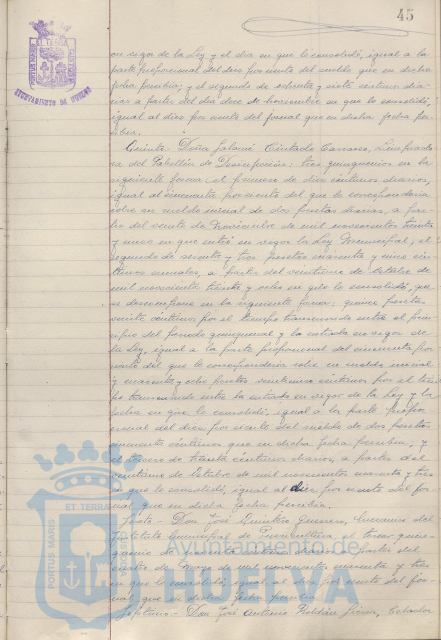 45
PORTUS MARIS
ET TERRÆ
AYUNTAMIENTO DE HUELVA
en vigor de la Ley y el dia en que lo consolidó, igual a la
parte proporcional del diez por ciento del sueldo que en dicha
fecha percibia; y el segundo de ochenta y siete centimos dia-
rios a partir del dia doce de noviembre en que lo consolidó,
igual al diez por ciento del jornal que en dicha fecha per-
cibia.
Quinto. Doña Salomé Cintado Carrasco, Limpiado-
ra del Pabellón de Desinfección: tres quinquenios en la
siguiente forma: el primero de diez centimos diarios,
igual al cincuenta por ciento del que le correspondería
sobre un sueldo inicial de dos pesetas diarias, a par-
tir del veinte de Noviembre de mil novecientos treinta
y cinco en que entró en vigor la Ley Municipal; el
segundo de sesenta y tres pesetas cuarenta y cinco cen-
timos anuales, a partir del veintiuno de Octubre de
mil novecientos treinta y ocho en que lo consolidó, que
se descompone en la siguiente forma: quince pesetas
veinte centimos por el tiempo transcurrido entre el prin-
cipio del periodo quinquenal y la entrada en vigor de
la Ley, igual a la parte proporcional del cincuenta por
ciento del que le correspondería sobre un sueldo inicial
y cuarenta y ocho pesetas veinticinco centimos por el tiem-
po transcurrido entre la entrada en vigor de la Ley y la
fecha en que lo consolidó, igual a la parte propor-
cional del diez por ciento del sueldo de dos pesetas
cincuenta centimos que en dicha fecha percibia, y
el tercero de treinta centimos diarios, a partir del
veintiuno de Octubre de mil novecientos cuarenta y tres
en que lo consolidó, igual al diez por ciento del jor-
nal que en dicha fecha percibia.
Sexto.- Don José Guerrero,
Instituto Municipal de Puericultura: un tercer quin-
quenio de a partir del
cuatro de Mayo de mil novecientos cuarenta y tres
en que lo consolidó, igual al diez por ciento del jor-
nal que en dicha fecha percibia.
Septimo.- Don José Antonio Roldán Celador
PORTUS MARIS
ET TERRA
Ayuntamiento de
HUELVA